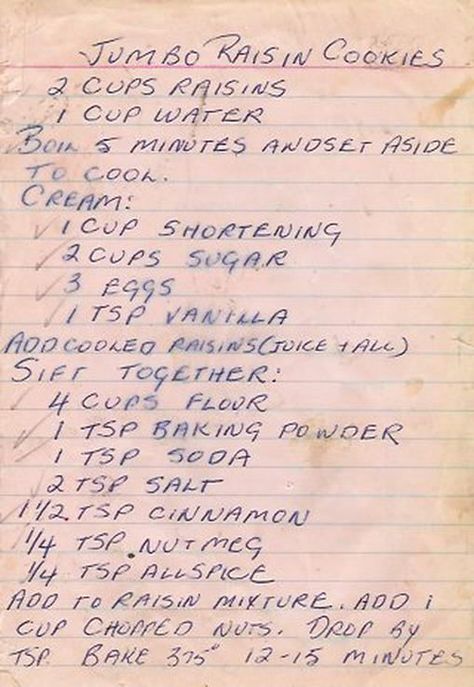 JUMBO RAISIN COOKIES
2 CUPS RAISINS
1 CUP WATER
BOIL 5 MINUTES AND SET ASIDE
TO COOL.
CREAM:
1 CUP SHORTENING
2 CUPS SUGAR
3 EGGS
1 TSP VANILLA
ADD COOLED RAISINS (JUICE + ALL)
SIFT TOGETHER:
4 CUPS FLOUR
1 TSP BAKING POWDER
1 TSP SODA
2 TSP SALT
1 1/2 TSP CINNAMON
1/4 TSP. NUTMEG
1/4 TSP ALLSPICE
ADD TO RAISIN MIXTURE. ADD 1
CUP CHOPPED NUTS. DROP BY
TSP. BAKE 375° 12-15 MINUTES